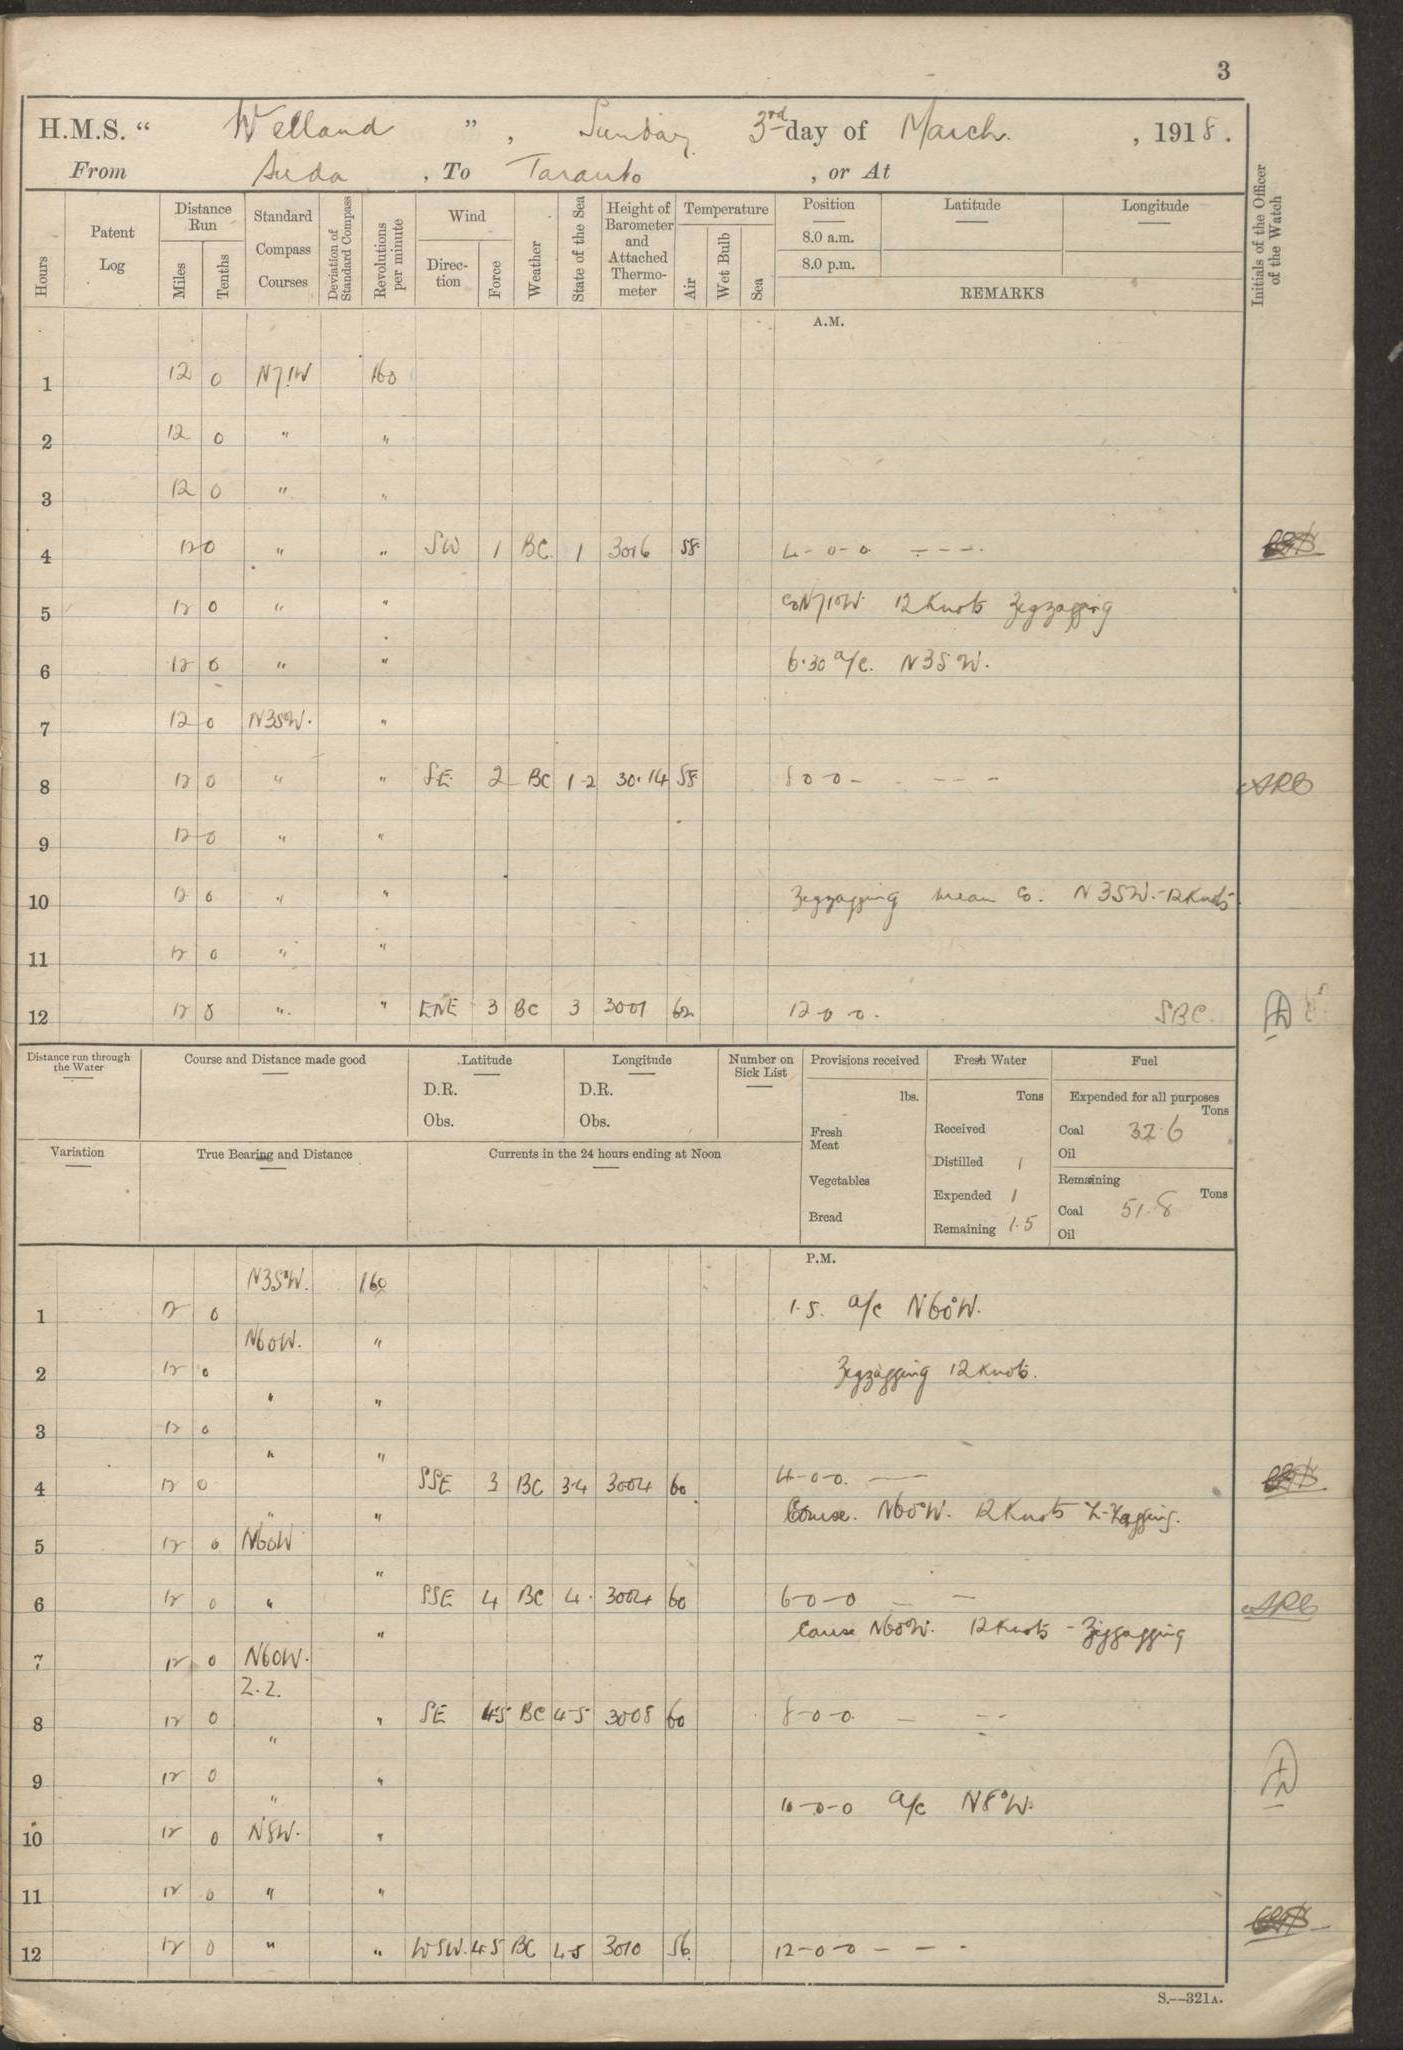 3
H.M.S. " Welland ", Sunday 3rd day of March. , 1918.
From Suda , To Taranto , or At
Hours
Patent Log
Distance Run
Miles
Tenths
Standard Compass Courses
Deviation of Standard Compass
Revolutions per minute
Wind
Direction
Force
Weather
State of the Sea
Height of Barometer and Attached Thermometer
Temperature
Air
Wet Bulb
Sea
Position
Latitude
Longitude
8.0 a.m.
8.0 p.m.
REMARKS
Initials of the Officer of the Watch
A.M.
1 12 0 N71W 160
2 12 0 " "
3 12 0 " "
4 12 0 " " SW 1 BC. 1 3016 58 4-0-0 ----
5 12 0 " " Co N71°W. 12 Knots Zigzagging
6 12 0 " " 6.30 a/c. N35W.
7 12 0 N35W. "
8 12 0 " " SE 2 BC 1-2 30.14 58 8 0 0 - - - - ARB
9 12 0 " "
10 12 0 " " Zigzagging mean Co. N35W.-12 Knots
11 12 0 " "
12 12 0 " " ENE 3 BC 3 3007 62 12-0-0. SBC.
Distance run through the Water
Course and Distance made good
Latitude
D.R.
Obs.
Longitude
D.R.
Obs.
Number on Sick List
Provisions received
lbs.
Fresh Meat
Vegetables
Bread
Fresh Water
Tons
Received
Distilled 1
Expended 1
Remaining 1.5
Fuel
Expended for all purposes
Tons
Coal 32.6
Oil
Remaining
Tons
Coal 51.8
Oil
Variation
True Bearing and Distance
Currents in the 24 hours ending at Noon
P.M.
N35°W. 160
1 12 0 1.5. a/c N60°W.
N60W. "
2 12 0 Zigzagging 12 Knots.
" "
3 12 0
" "
4 12 0 SSE 3 BC 3.4 3004 60 4-0-0. ——
" " Course. N60°W. 12 Knots Z-Zagging.
5 12 0 N60W
"
6 12 0 " SSE 4 BC 4. 3004 60 6-0-0 — — ARB
" Course N60°W. 12 Knots - Zigzagging
7 12 0 N60W.
Z.Z.
8 12 0 " SE 4-5 BC 4-5 3008 60 8-0-0 — --
"
9 12 0 "
" 10-0-0 a/c N8°W.
10 12 0 N8W. "
11 12 0 " "
12 12 0 " " WSW. 4-5 BC 4-5 3010 56 12-0-0 - - -
S.—321A.